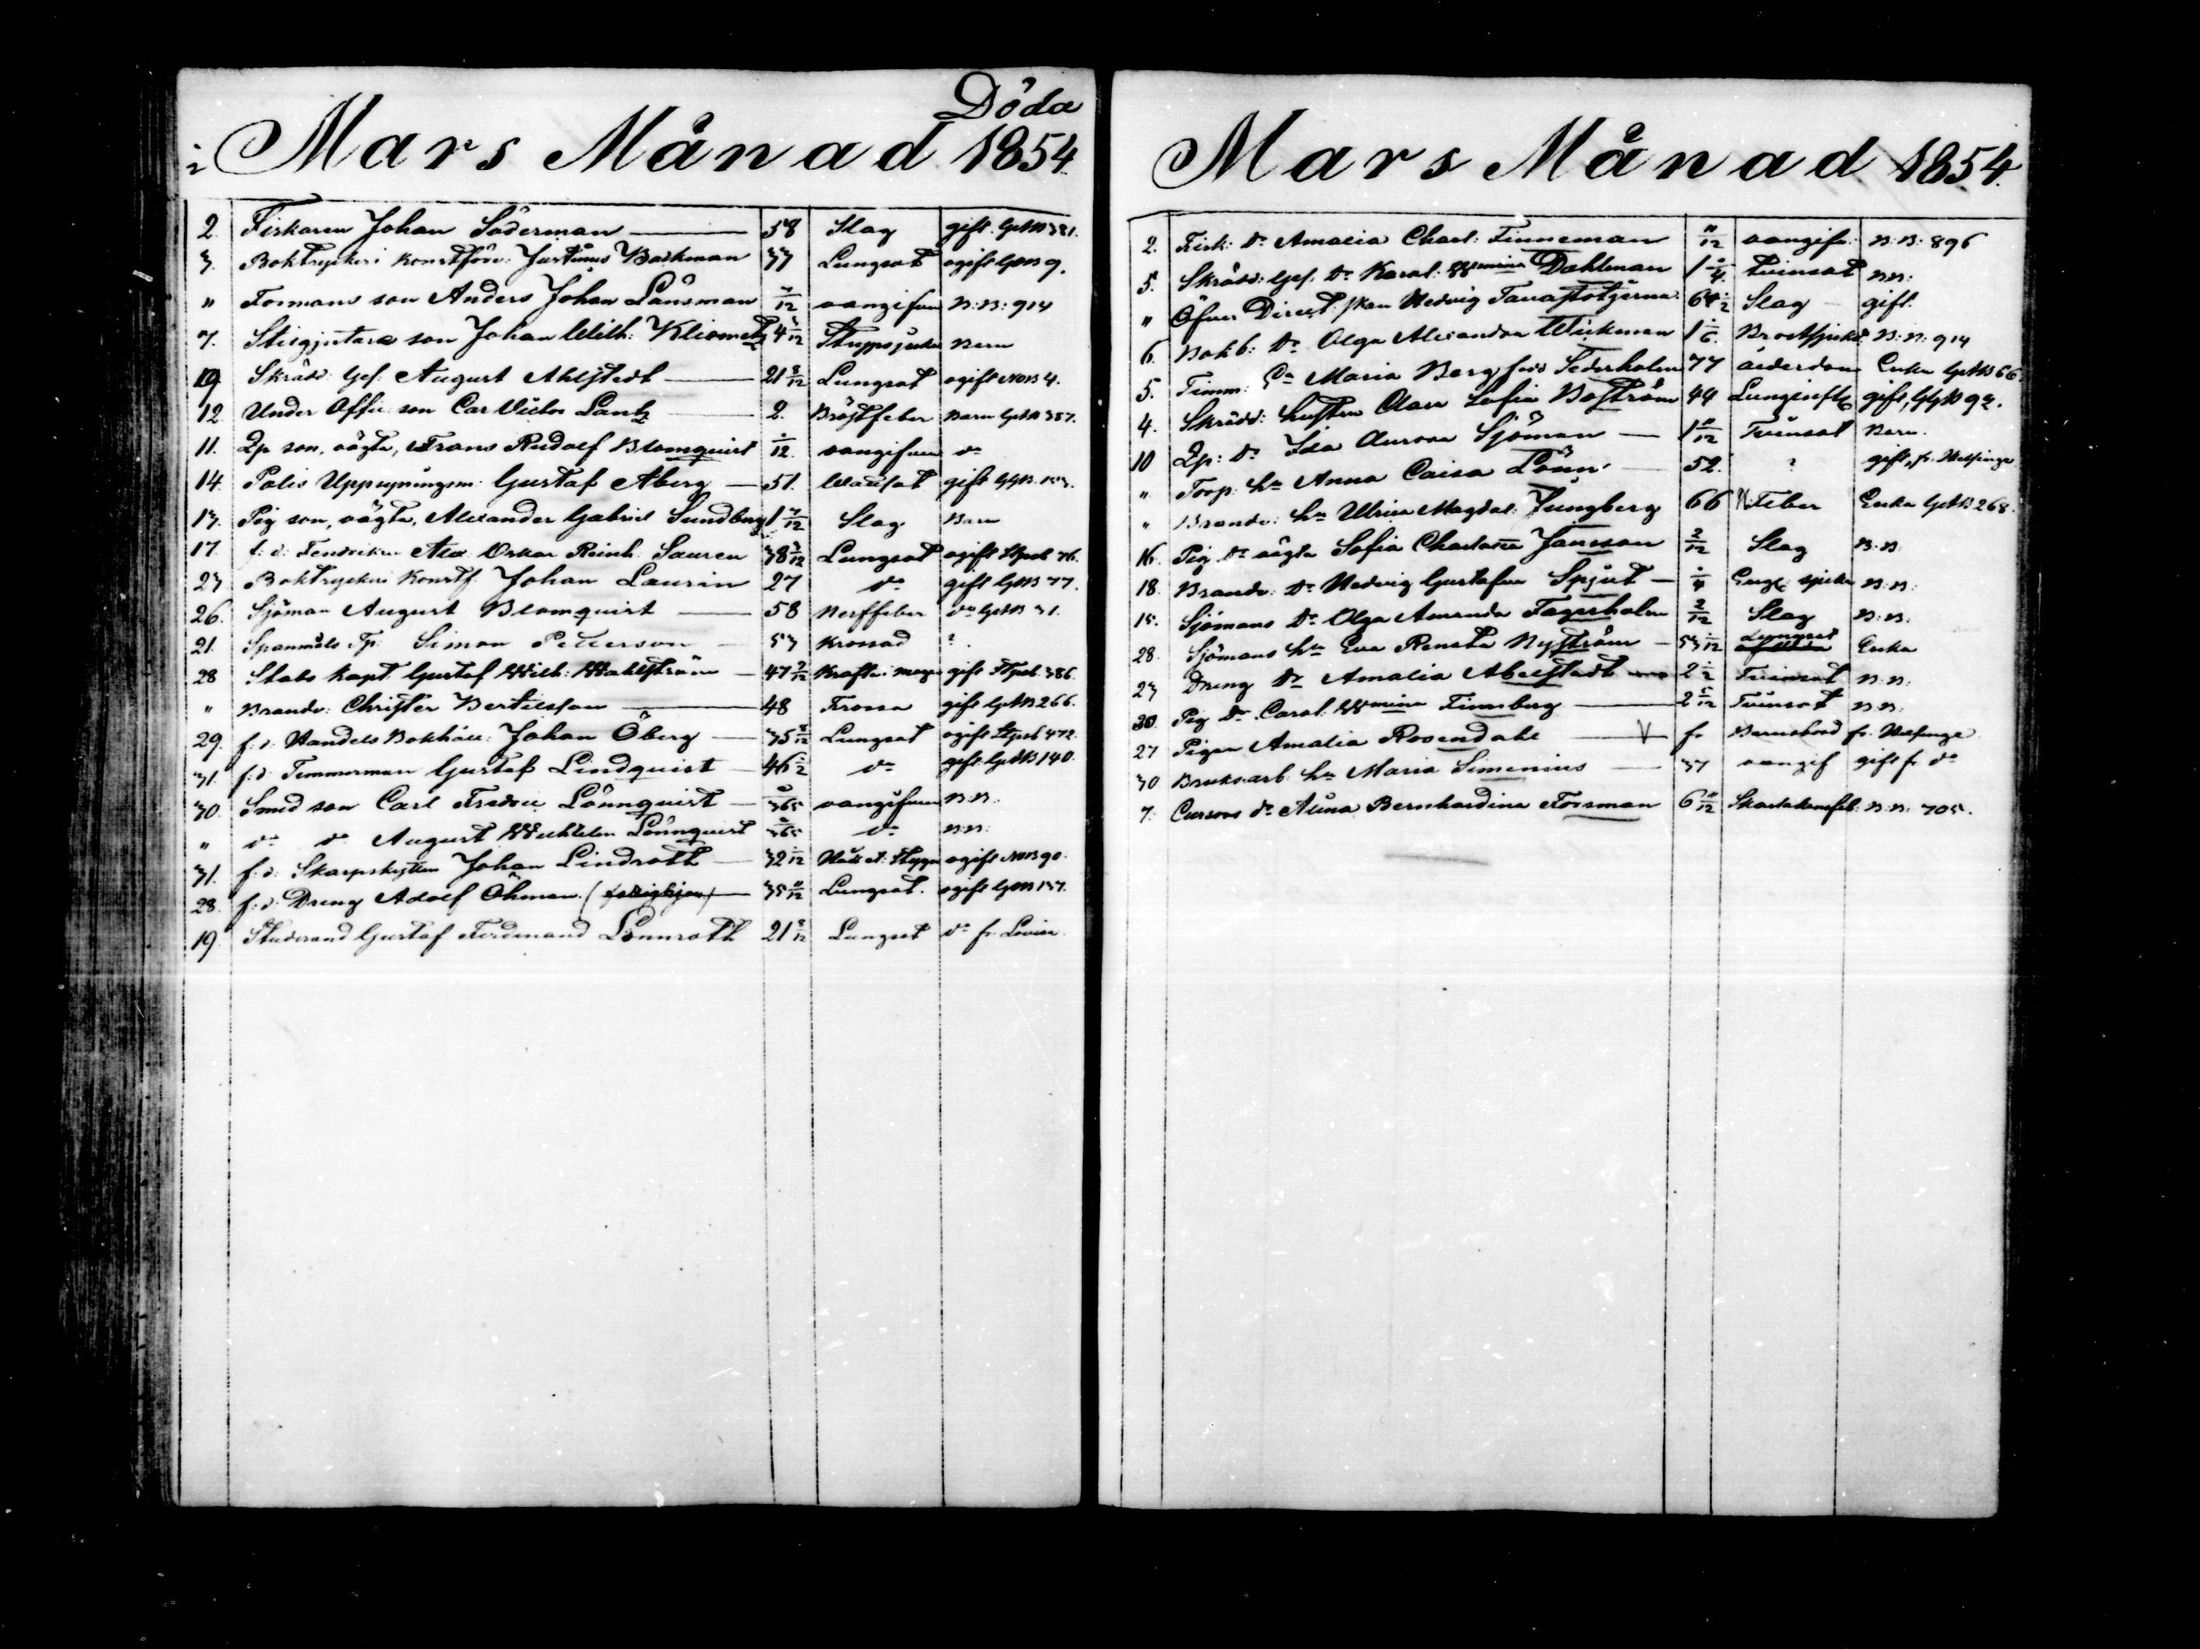 Döda
i Mars Månad 1854.
2. Fiskaren Johan Söderman 58 Slag gift
3. Boktryckeri konstför: Justinus Backman 33 Lungsot ogift 9.
" Formans son Anders Johan Länsman 7/12 oangifven N:B: 914
7. son Johan Wilh: 4 Strypsjuka Barn
19 Skrädd: Ges: August Ahlstedt 21 8/12 Lungsot ogift 4.
12. Under Offic: son Carl Victor Lantz 2. Bröstfeber Barn 387.
11. son, oägta, Frans Rudolf Blomquist 1/12. oangifven do
14. Polis Uppsyningsm: Gustaf Åberg 51. Wattusot gift
13. Pig son, oägta, Alexander Gabriel Sundberg 1 7/12 Slag Barn
17. f: d: Fendriken Alex Oskar Reinh: Sauren 38 3/12 Lungsot ogift 76.
23 Boktryckeri Konstf. Johan Laurin 27 do gift 77.
26. Sjöman August Blomquist 58 Nerffeber do 31.
21. Simon Petterson 53 Krossad ?
28 Stabs Kapt. Gustaf Wilh: Wahlström 47 gift 386.
" Brandv: Christer Bertilsson 48 Frossa gift 266.
29. f: d: Handels Bokhåll: Johan Öberg 35 Lungsot ogift 472.
31. f: d: Timmerman Gustaf Lindquist 46 1/2 do gift 140.
30. Smed son Carl Fredric Lönnquist 2/365 oangifven N:B:
" do do August Wilhelm Lönnquist 2/365 do N:B:
31. f: d: Skarpskytten Johan Lindroth 32 1/12 Håll o: Stygn ogift 90.
28. f: d: Dreng Adolf Öhman 35 11/12 Lungsot. ogift 137.
19. Studerand Gustaf Ferdinand Lönnroth 21 8/12 Lungsot do fr. Lovisa.
Mars Månad 1854.
2. Fisk: dr Amalia Charl: Finneman 11/12 oangifv: N:B: 896
5. Skrädd: Ges: Dr Karol: Wmina Dahlman 1 3/4 Tvinsot N:B:
" Öfver Direct: Hedvig Tavaststjerna 64 1/2 Slag gift.
6. Bokb: Dr Olga Alexandra Wickman 1 1/6. Bröstsjukd: N:B: 914
5. Timm: Maria Berg född Sederholm 77 ålderdom Enka 66.
4. Skrädd: hustru Clara Sofia Boström 44 gift, 92.
10 Dr Ida Aurora Sjöman 1 11/12 Tvinsot Barn.
" Torp: hu Anna Caisa Lönn 52. ? gift, fr. Helsinge
" Brandv: hu Ulrica Magdal: Ljungberg 66 N: Feber Enka 268.
16. Pig Dr oägta Sofia Charlotta Jansson 2/12 Slag N:B:
18. Brandv: Dr Hedvig Gustafva Spjut 1/4 N:B:
15. Sjömans Dr Olga Amanda Fagerholm 2/12 Slag N:B:
28. Sjömans hu Eva Renata Nyström 53 1/12 Lungsot Enka
23 Dreng Dr Amalia Abelstedt 2 1/2 Tvinsot N:B:
30. Pig Dr Carol: Wmina Finnberg 2 5/12 Tvinsot N:B:
27 Pigan Amalia Rosendahl V fr Barnsbörd fr. Helsinge
30 Bruksarb: hu Maria Simenius 37 oangif gift fr do
7. Cursors dr Alina Bernhardina Forsman 6 11/12 Skarlakansfeb: N:B: 705.